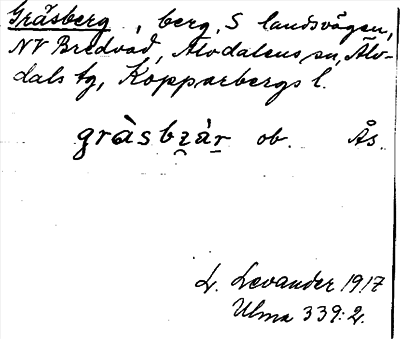 Gräsberg, berg, S landsvägen,
NV Bredvad, Älvdalens sn, Älv-
dals tg, Kopparbergs l.
gràsbʐàr ob. Ås.
L. Levander 1917
Ulma 339:2.